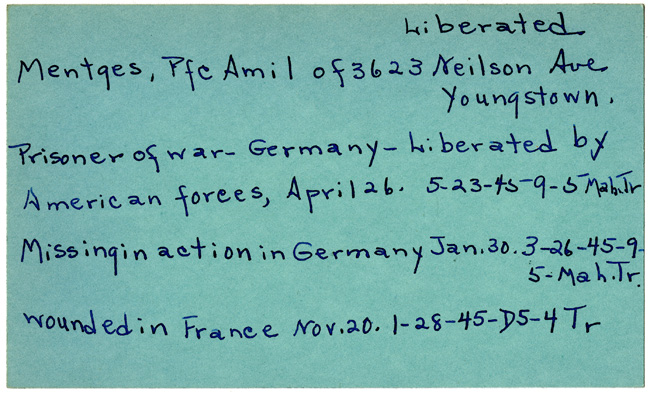 Liberated
Mentges, Pfc Amil of 3623 Neilson Ave
Youngstown.
Prisoner of war- Germany- Liberated by
American forces, April 26. 5-23-45-9-5 Mah.Tr
Missing in action in Germany Jan. 30. 3-26-45-9-
5-Mah.Tr.
wounded in France Nov. 20. 1-28-45-D5-4 Tr